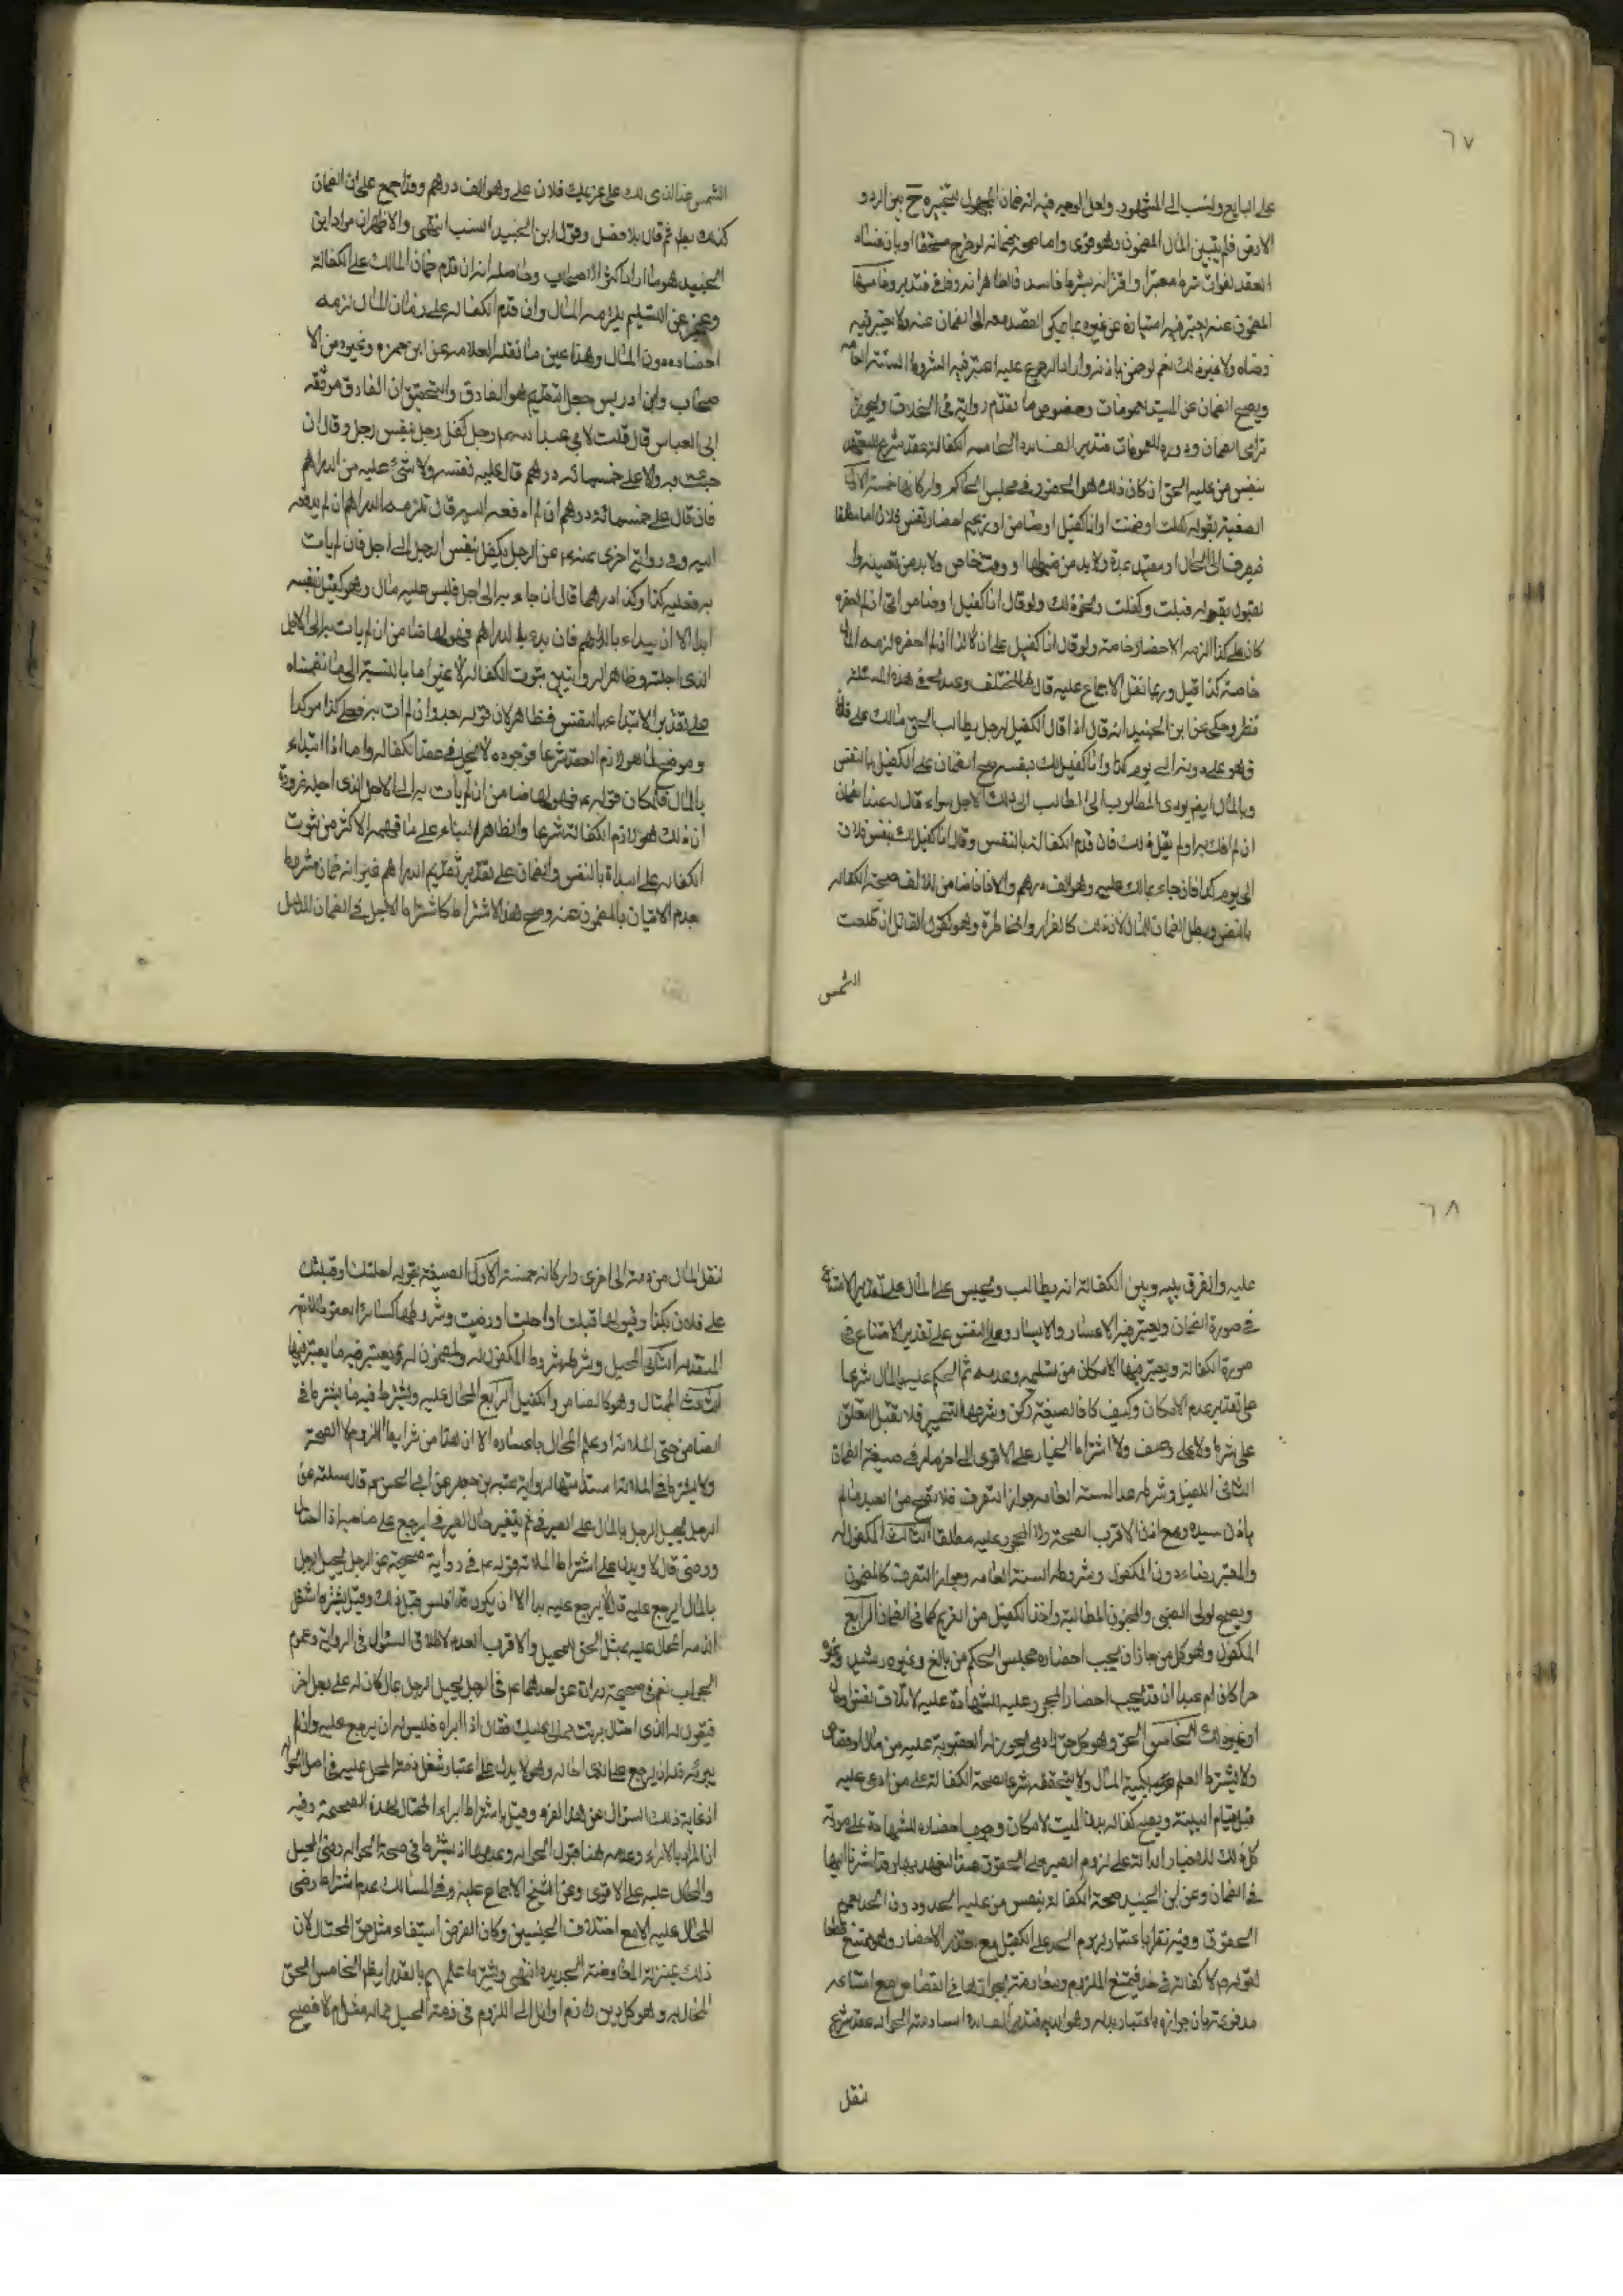 ٦٧
على البايع ونسب الى المشهور ولعل الوجه فيه انه ضمان المجهول لتخييره ح بين الرد و
الارش فلم يتبين المال المضمون وهو قوى واما صحة ضمانه لو خرج مستحقا او بان فساد
العقد لفوات شرط معتبر او اقترانه بشرط فاسد فالظاهر انه وفاقى فتدبر وخامسها
المضمون عنه ولا يعتبر فيه امتيازه عن غيره بما يمكن القصد معه الى الضمان عنه ولا يعتبر فيه
رضاه ولا غير ذلك نعم لو ضمن باذنه واراد الرجوع عليه اعتبر فيه الشروط الستة العامة
ويصح الضمان عن الميت للعمومات وخصوص ما تقدم روايته فى الخلاف ويجوز
ترامى الضمان ودوره للعمومات فتدبر الفايده الخامسه الكفالة عقد شرع للتعهد
بنفس من عليه الحق ان كان ذلك هو الحضور فى مجلس الحاكم واركانها خمسة الاول
الصيغة بقوله كفلت او ضمنت او انا كفيل او ضامن او زعيم احضار نفس فلان اما مطلقا
فيصرف الى الحال او مقيد بمدة ولا بد من ضبطها او وقت خاص ولا بد من تعيينه وا
لقبول بقوله قبلت وكفلت ونحو ذلك ولو قال انا كفيل او ضامن الى ان لم احضره
كان على كذا لزمه الاحضار خاصة ولو قال انا كفيل على ان على كذا ان لم احضره لزمه المال
خاصة كذا قيل وربما نقل الاجماع عليه قال فى المختلف وعندى فى هذه المسئلة
نظر وحكى عن ابن الجنيد انه قال اذا قال الكفيل لرجل يطالب الحق مالك على فلان
فهو على وبه الى يوم كذا وانا كفيل لك بنفسه صح الضمان على الكفيل بالنفس
وبالمال ان لم يؤدى المطلوب الى الطالب الى ذلك الاجل سواء قال له عند الضمان
ان لم افك به او لم يقل ذلك فان قدم الكفالة بالنفس وقال انا كفيل لك بنفس فلان
الى يوم كذا فان جاء بمالك عليه وهو الف درهم والا فانا ضامن للالف صحت الكفاله
بالنفس وبطل الضمان للمال لان ذلك كالقرار والمخاطرة وهو كقول القائل ان طلعت
الشمس
الشمس غدا الذى لك على غريمك فلان على وهو الف درهم وقد اجمع على ان الضمان
كذلك بطل ثم قال بلا فصل وقول ابن الجنيد انسب انتهى والاظهر ان مراد ابن
الجنيد هو ما اراد اكثر الاصحاب وحاصله انه ان قدم ضمان المالك على الكفالة
وعجز عن التسليم يلزمه المال وان قدم الكفاله على ضمان المال لزمه
احضاره دون المال وهذا عين ما نقله العلامه عن ابن حمزه وغيره من الا
صحاب وابن ادريس جعل التقديم هو الفارق والتحقيق ان الفارق موثقه
ابى العباس قال قلت لابى عبد الله ع رجل كفل رجل بنفس رجل وقال ان
جئت به والا على خمسمائه درهم قال عليه نفسه ولا شئ عليه من الدراهم
فان قال على خمسمائة درهم ان لم ادفعه اليه قال تلزمه الدراهم ان لم يدفعه
اليه وفى رواية اخرى عنه ع عن الرجل يكفل بنفس الرجل الى اجل فان لم يات
به فعليه كذا وكذا درهما قال ان جاء به الى اجل فليس عليه مال وهو كفيل بنفسه
ابدا الا ان يبداء بالدراهم فان بدء بالدراهم فهو لها ضامن ان لم يات به الى الاجل
الذى اجله وظاهر الروايتين ثبوت الكفاله لا غير اما بالنسبة الى ما تضمناه
على تقدير الابتداء بالنفس فظاهر لان قوله بعد وان لم ات به فعلى كذا مؤكدا
وموضح لما هو لازم العقد شرعا فوجوده لا يخل فى عقد الكفاله واما اذا ابتداء
بالمال فلمكان قوله ع فهو لها ضامن ان لم يات به الى الاجل الذى اجله ضرورة
ان ذلك هو لازم الكفالة شرعا والظاهر البناء على ما فهمه الاكثر من ثبوت
الكفاله على البداة بالنفس والضمان على تقدير تقديم الدراهم غير انه ضمان مشروط
بعدم الاتيان بالمضمون عنه وصح هذا الاشتراط كاشتراط الاجل فى الضمان للدليل
٦٨
عليه والفرق بينه وبين الكفالة انه يطالب ويحبس على المال على تقدير الامتناع
فى صورة الضمان ويعتبر فيه الاعسار والايسار وعلى النفس على تقدير الامتناع فى
صورة الكفالة ويعتبر فيها الامكان من تسليمه وعدمه ثم الحكم عليه بالمال شرعا
على تقدير عدم الامكان وكيف كان فالصيغة ركن وشرطها التنجيز فلا تقبل التعلق
على شرط ولا على وصف ولا اشتراط الخيار على الاقوى الى اخر ما مر فى صيغة الضمان
الثانى الكفيل وشرطه عدا الستة العامه جواز التصرف فلا تصح من العبد ما لم
ياذن سيده ومع اذن الاقرب الصحة ولا المحجور عليه مطلقا الثالث المكفول له
والمعتبر رضاه دون المكفول وشروطه الستة العامه وجواز التصرف كالمضمون
ويصح لولى الصبى والمجنون المطالبة واخذ الكفيل من الغريم كما فى الضمان الرابع
المكفول وهو كل من جاز ان يجب احضاره مجلس الحكم من بالغ وغيره رشيد وغيره
حرا كان ام عبدا ان قد يجب احضار المحجور عليه للشهادة عليه لاتلاف نفس او مال
او غير ذلك الخامس الحق وهو كل حق لادمى يجوز له العقوبة عليه من مال او قصاص
ولا يشترط العلم بكمية المال ولا بتحققه شرعا لصحة الكفالة على من ادعى عليه
قبل قيام البينة ويصح كفاله بدن الميت لامكان وجوب احضاره للشهادة على صورته
كل ذلك للاخبار الدالة على لزوم الصبر على الحقوق هذا التعهد بها وقد اشرنا اليها
فى الضمان وعن ابن الجنيد صحة الكفالة بنفس من عليه الحدود ون الحد اهم
الحقوق وفيه نظر باعتبار لزوم الحد على الكفيل مع تعذر الاحضار وهو ممتنع قطعا
لقوله ع لا كفالة فى حد فيمتنع الملزوم ومعارضته بجرانها فى القصاص مع امتناعه
مدفوعة بان جوازه باعتبار بدله وهو الديه فتدبر الفايده السادسة الحواله عقد شرع
نقل
لنقل المال من ذمة الى اخرى واركانه خمسة الاول الصيغة بقوله احلتك او قبلتك
على فلان بكذا وقبولها قبلت او احلت او رضيت وشروطها كسائر العقود اللازمه
المتقدمه الثانى المحيل وشرطه شروط المكفول له والمضمون له ويعتبر فيه ما يعتبر فيها
الثالث المحتال وهو كالضامن والكفيل الرابع المحال عليه ويشترط فيه ما يشترط فى
الضامن حتى الملائة او علم المحتال باعساره الا ان هذا من شرايط اللزوم لا الصحة
ولا يشترط فى الملائة استدامتها لرواية عقبه بن جعفر عن ابى الحسن ع قال سئلته عن
الرجل يحيل الرجل بالمال على الصيرفى ثم يتغير حال الصيرفى ايرجع على صاحبه اذا احتال
ورضى قال لا ويدل على اشتراط الملائة قوله ع فى رواية صحيحة عن الرجل يحيل الرجل
بالمال ايرجع عليه قال لا يرجع عليه ابدا الا ان يكون قد افلس قبل ذلك وقيل يشترط شغل
الذمه المحال عليه بمثل الحق للمحيل والاقرب العدم لاطلاق السؤال فى الرواية وعموم
الجواب نعم فى صحيحة زرارة عن احدهما ع فى الرجل يحيل الرجل بمال كان له على رجل اخر
فيقول له الذى احتال برئت مما لى عليك فقال اذا ابراه فليس له ان يرجع عليه وان لم
يبرئه فله ان يرجع على الذى احاله وهو لا يدل على اعتبار شغل ذمة المحال عليه فى اصل الحواله
اذ غاية ذلك السؤال عن هذا الفرد وقيل باشتراط ابراء المحتال لهذه الصحيحة وفيه
ان المراد بالابراء وعدمه هنا قبول الحواله وعدمها اذ يشترط فى صحة الحواله رضى المحيل
والمحال عليه على الاقوى وعن الشيخ الاجماع عليه وفى المسالك عدم اشتراط رضى
المحال عليه الا مع اختلاف الجنسين وكان الغرض استيفاء مثل حق المحتال لان
ذلك بمنزلة المعاوضة الجديده انتهى ويشترط علمهم بالقدر ايضا الخامس الحق
المحال به وهو كل دين لازم او ائل الى اللزوم فى ذمة المحيل فماله مقدام لا فصيح